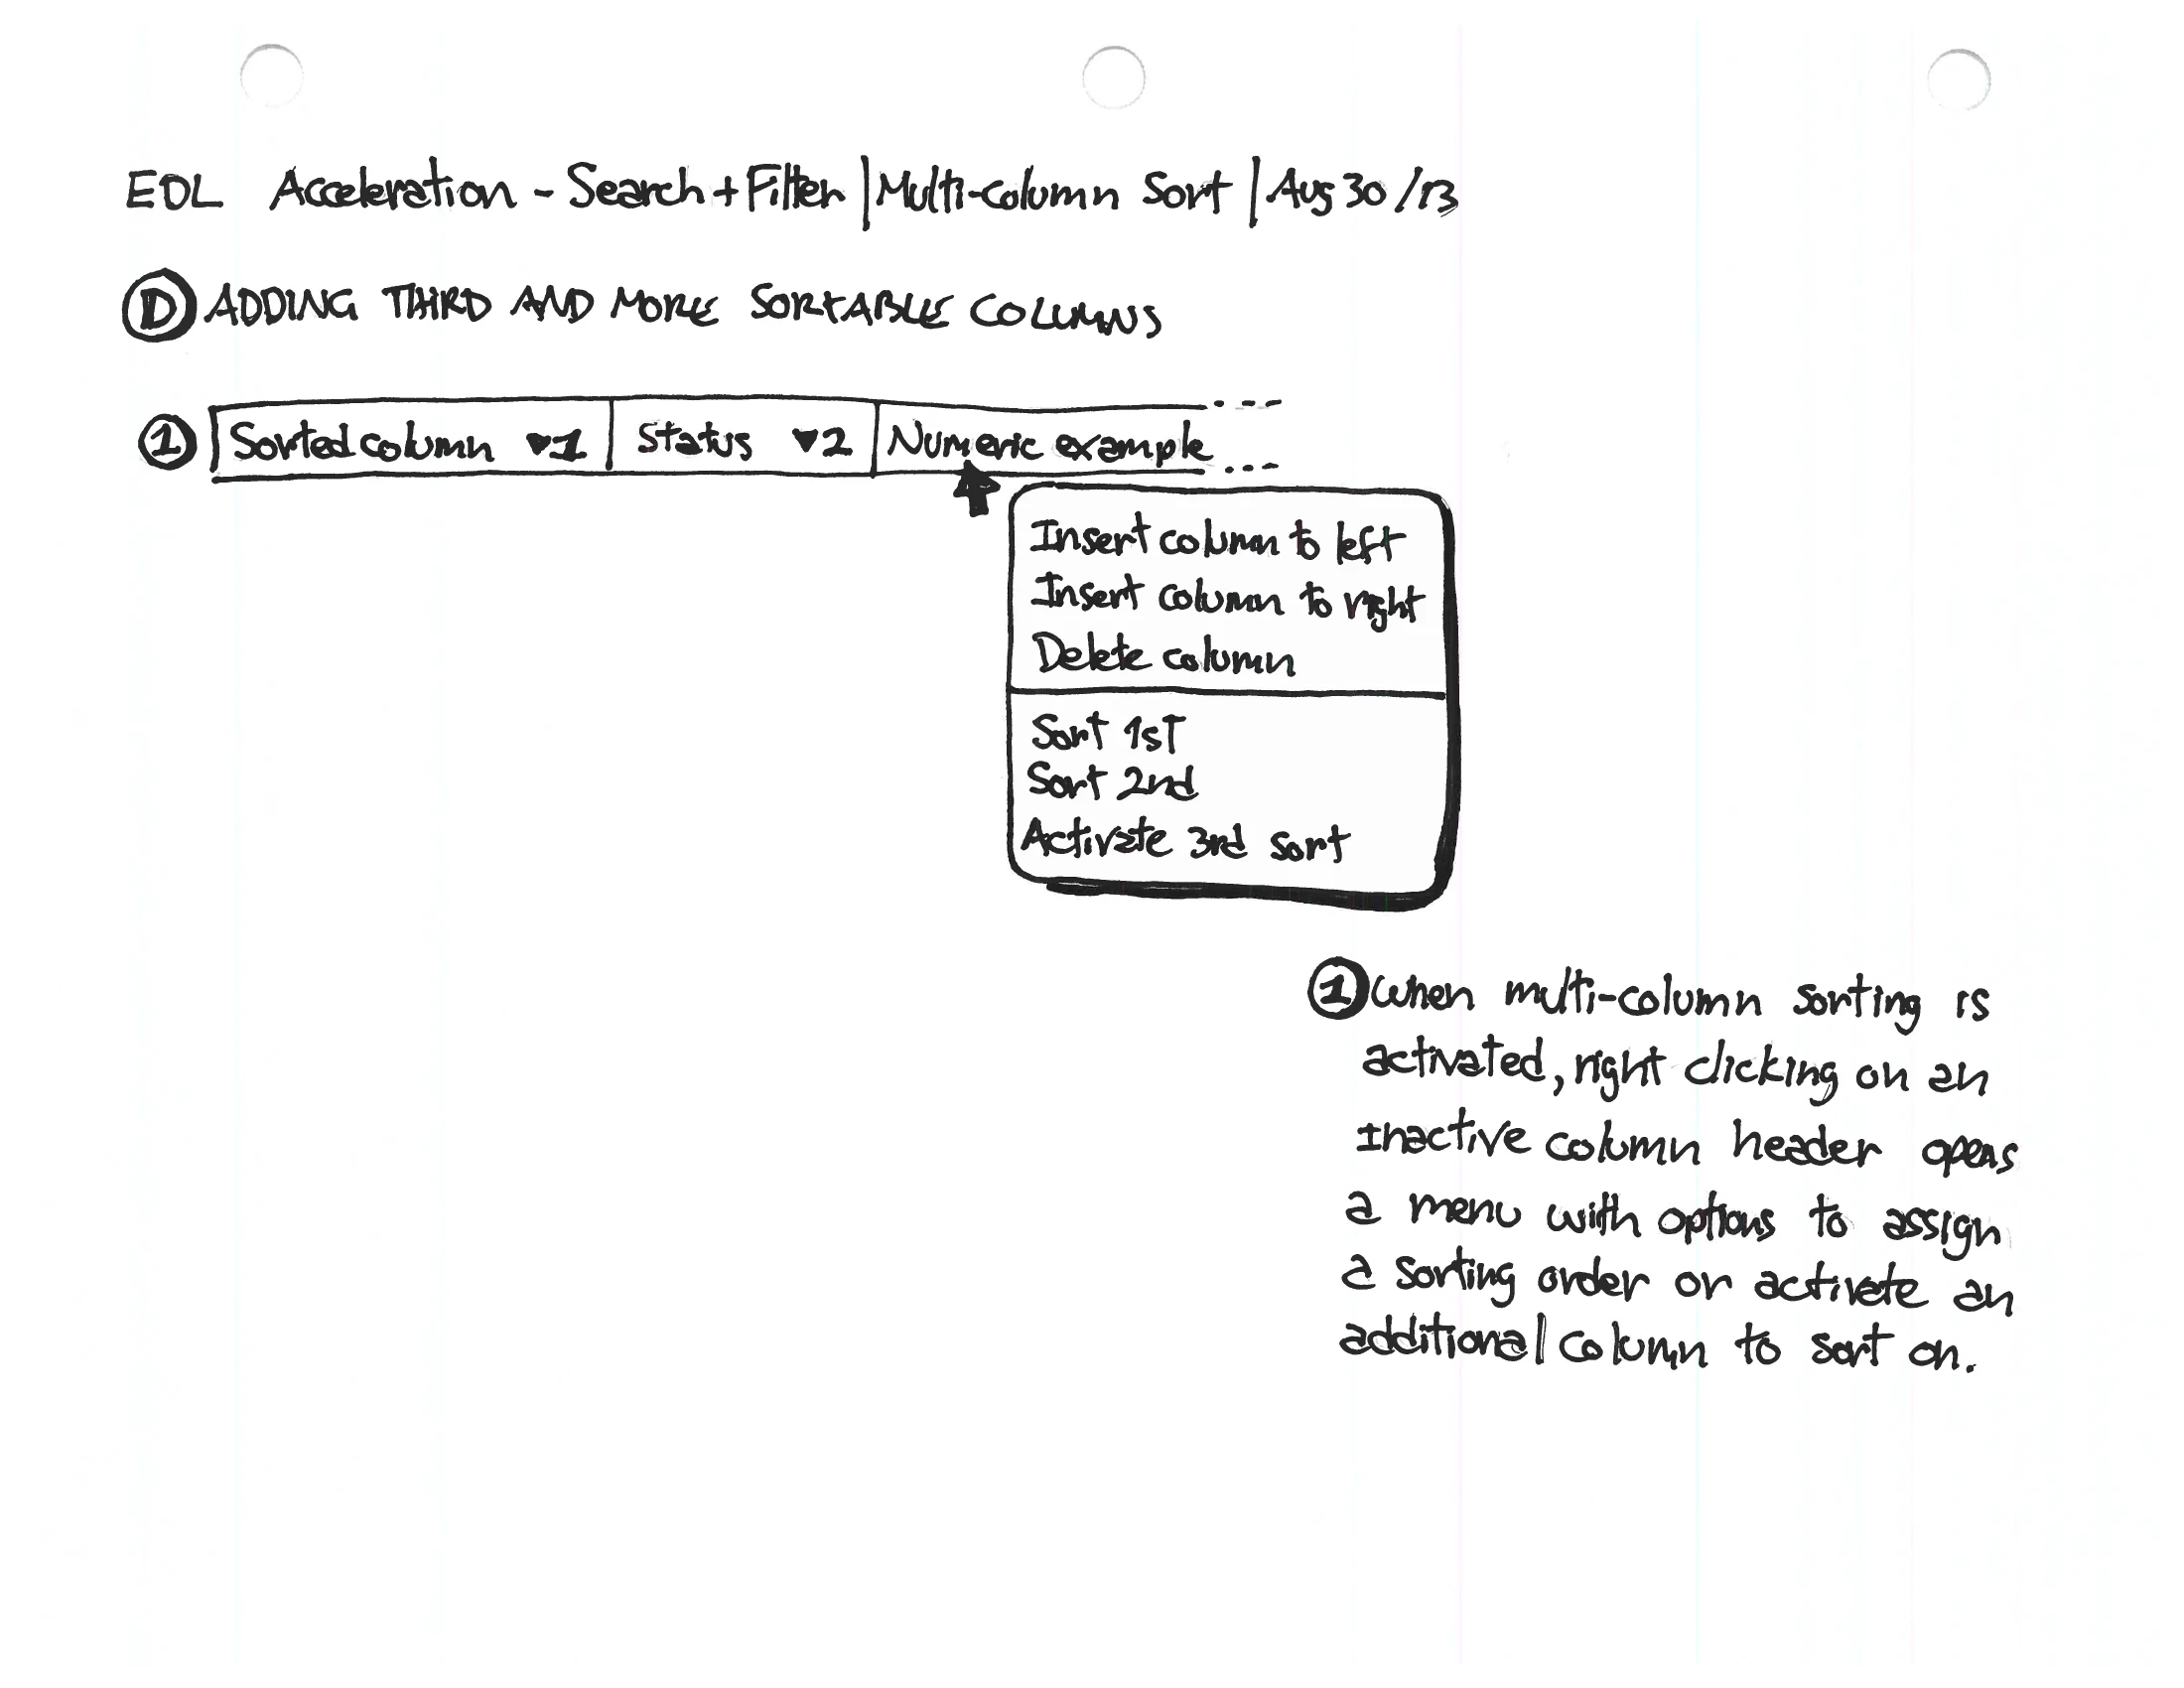 EDL Acceleration - Search + Filter | Multi-column Sort | Aug 30/13
D ADDING THIRD AND MORE SORTABLE COLUMNS
1 Sorted column ▼1 | Status ▼2 | Numeric example
Insert column to left
Insert column to right
Delete column
Sort 1st
Sort 2nd
Activate 3rd sort
1 When multi-column sorting is
activated, right clicking on an
inactive column header opens
a menu with options to assign
a sorting order or activate an
additional column to sort on.